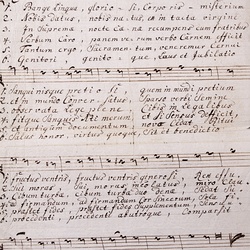 Pange lingua, glorio - si, Corpo ris - misterium
2. Nobis datus, nobis na tus, ex in tacta virgine
3. In Suprema nocte Cæ na recumpens cum fratribus
4. Verbum Caro, panem ve rum verbo Carnem efficit
5. Tantum ergo, Sacramen- tum, veneremur Cernui
6. Genitori genito - que, Laus et Jubilatio
Sanguinisque pretio si quem in mundi pretium
2. et in mundo Conver - satus, Sparso verbi Semine
3. observata lege ple ne, Cibis in legalibus
4. fitque Sanguis Xti merum, et si Sensus deficit
5. et antiquum documentum
6. Salus honor, virtus quoque Sit et benedictio
fructus ventris, fructus ventris generosi Rex effu
2. Sui moras miro Clau
3. Cibum turbæ duo denæ
4. ad firmandum, ad firmandum Cor Sincerum, Sola fi
5. præstet fides, præstet fides Supplementum,
6. procedenti, procedenti abutroque Comparsit